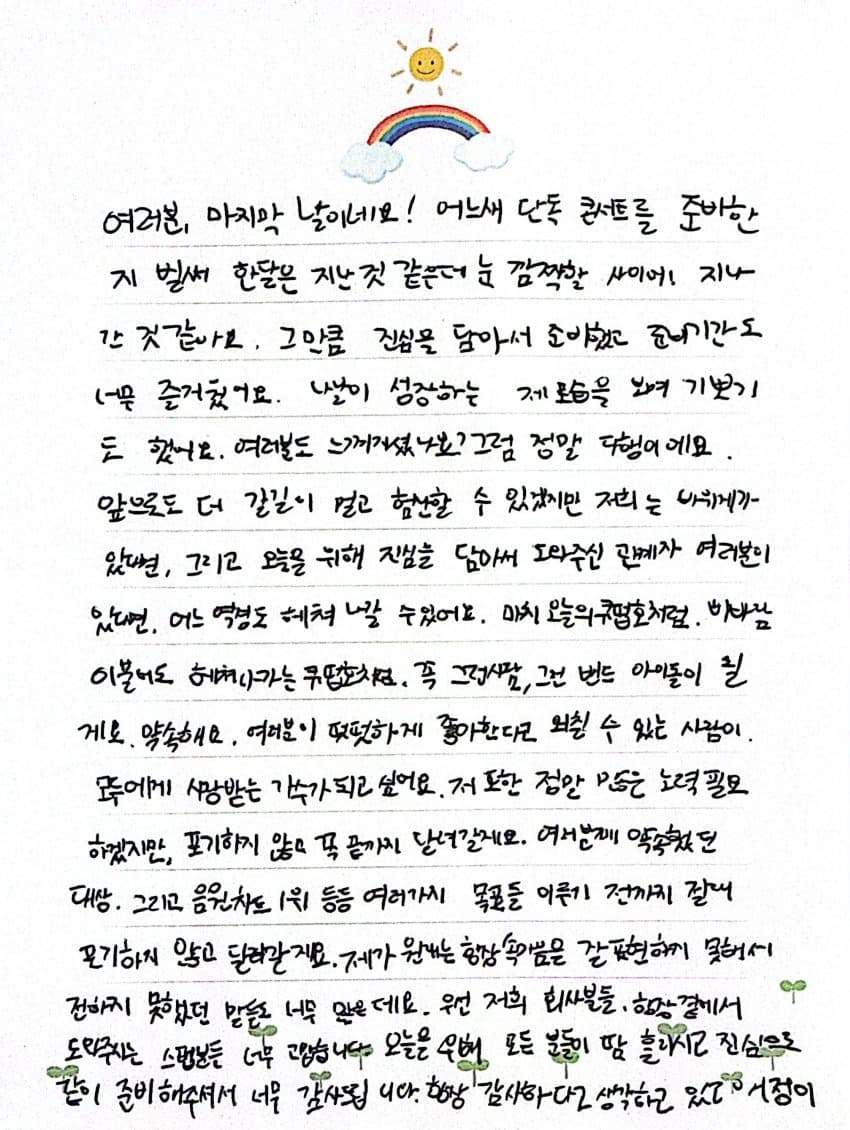 여러분, 마지막 날이네요! 어느새 단독 콘서트를 준비한
지 벌써 한달은 지난 것 같은데 눈 깜짝할 사이에! 지나
간 것 같아요. 그만큼 진심을 담아서 준비했고 준비기간도
너무 즐거웠어요. 나날이 성장하는 제 모습을 보여 기쁘기
도 했어요. 여러분도 느껴지셨나요? 그럼 정말 다행이에요.
앞으로도 더 갈길이 멀고 험난할 수 있겠지만 저희는 바위게가
있다면, 그리고 오늘을 위해 진심을 담아서 도와주신 관계자 여러분이
있다면, 어느 역경도 헤쳐 나갈 수 있어요. 마치 오늘의 쿠떱호처럼. 비바람
이 불어도 헤쳐나가는 쿠떱호처럼. 꼭 그런 사람, 그런 밴드 아이돌이 될
게요. 약속해요. 여러분이 떳떳하게 좋아한다고 외칠 수 있는 사람이.
모두에게 사랑받는 가수가 되고 싶어요. 저 또한 정말 많은 노력 필요
하겠지만, 포기하지 않고 꼭 끝까지 달려갈게요. 여러분께 약속했던
대상. 그리고 음원차트 1위 등등 여러가지 목표들 이루기 전까지 절대
포기하지 않고 달려갈게요. 제가 원래는 항상 속마음을 잘 표현하지 못해서
전하지 못했던 말들도 너무 많은데요. 우선 저희 회사분들. 항상 곁에서
도와주시는 스텝분들 너무 고맙습니다. 오늘을 위해 모든 분들이 땀 흘리시고 진심으로
같이 준비해주셔서 너무 감사드립니다. 항상 감사하다고 생각하고 있고 서정이